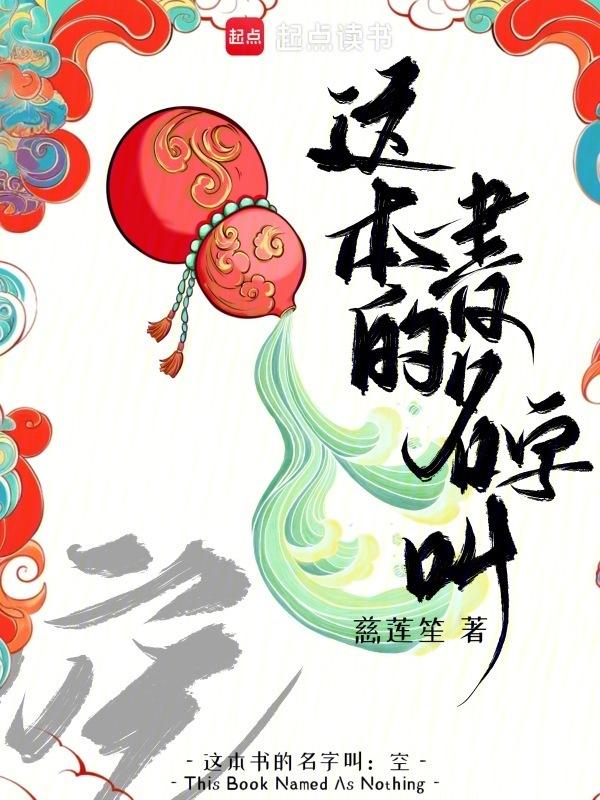 起点 起点读书
这本書的名字叫
空
慈莲笙 著
- 这本书的名字叫：空 -
- This Book Named As Nothing -